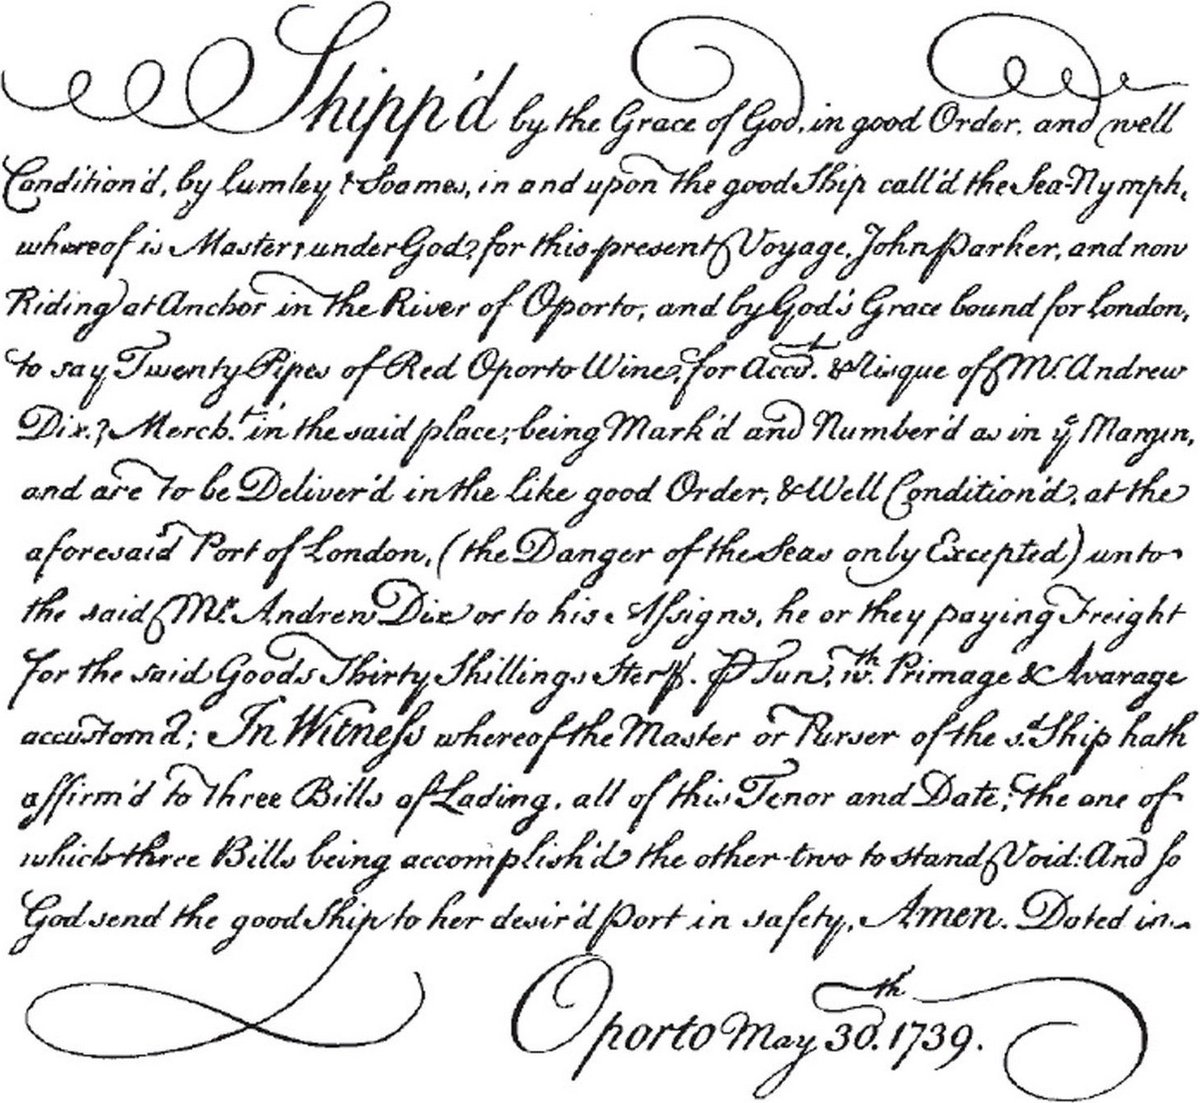 Shipp'd by the Grace of God, in good Order, and well
Condition'd, by Lumley & Soames, in and upon the good Ship call'd the Sea-Nymph,
whereof is Master, under God, for this present Voyage, John Parker, and now
Riding at Anchor in the River of Oporto, and by God's Grace bound for London,
to say Twenty Pipes of Red Oporto Wine, for Acco.t & Risque of Mr. Andrew
Dix, Merch.t in the said place; being Mark'd and Number'd as in ye Margin,
and are to be Deliver'd in the like good Order, & Well Condition'd, at the
aforesaid Port of London, (the Danger of the Seas only Excepted) unto
the said Mr. Andrew Dix or to his Assigns, he or they paying Freight
for the said Goods Thirty Shillings Ster. P Tun, wth. Primage & Avarage
accustom'd; In Witness whereof the Master or Purser of the sd. Ship hath
affirm'd to three Bills of Lading, all of this Tenor and Date; the one of
which three Bills being accomplish'd the other two to stand Void: And so
God send the good Ship to her desir'd Port in safety, Amen. Dated in
Oporto May 30th. 1739.